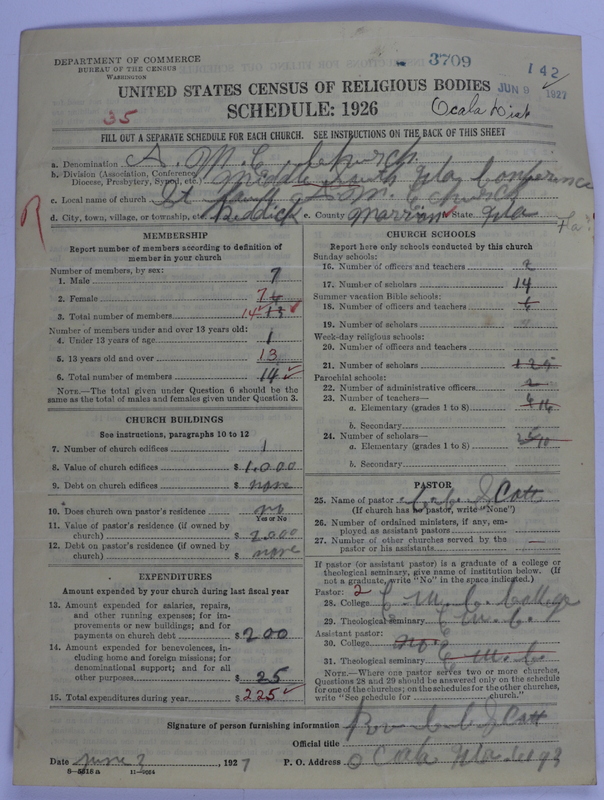 DEPARTMENT OF COMMERCE
BUREAU OF THE CENSUS
WASHINGTON
3709
142
JUN 9 1927
UNITED STATES CENSUS OF RELIGIOUS BODIES
SCHEDULE: 1926
35
Ocala Dist
FILL OUT A SEPARATE SCHEDULE FOR EACH CHURCH. SEE INSTRUCTIONS ON THE BACK OF THIS SHEET
a. Denomination A. M. E. church
b. Division (Association, Conference, Diocese, Presbytery, Synod, etc.) Middle South Fla Conference
c. Local name of church St A M E church
d. City, town, village, or township, etc. Reddick e. County Marrion State Fla
R
Fla
MEMBERSHIP
Report number of members according to definition of
member in your church
Number of members, by sex:
1. Male 7
2. Female 7
3. Total number of members 14
Number of members under and over 13 years old:
4. Under 13 years of age 1
5. 13 years old and over 13
6. Total number of members 14
NOTE.—The total given under Question 6 should be the
same as the total of males and females given under Question 3.
CHURCH BUILDINGS
See instructions, paragraphs 10 to 12
7. Number of church edifices 1
8. Value of church edifices $ 1,000
9. Debt on church edifices $ none
10. Does church own pastor's residence no
Yes or No
11. Value of pastor's residence (if owned by
church) $ 2,000
12. Debt on pastor's residence (if owned by
church) $ none
EXPENDITURES
Amount expended by your church during last fiscal year
13. Amount expended for salaries, repairs,
and other running expenses; for im-
provements or new buildings; and for
payments on church debt $ 200
14. Amount expended for benevolences, in-
cluding home and foreign missions; for
denominational support; and for all
other purposes $ 25
15. Total expenditures during year $ 225
CHURCH SCHOOLS
Report here only schools conducted by this church
Sunday schools:
16. Number of officers and teachers 2
17. Number of scholars 14
Summer vacation Bible schools:
18. Number of officers and teachers 6
19. Number of scholars
Week-day religious schools:
20. Number of officers and teachers
21. Number of scholars 125
Parochial schools:
22. Number of administrative officers 2
23. Number of teachers—
a. Elementary (grades 1 to 8)
b. Secondary
24. Number of scholars—
a. Elementary (grades 1 to 8)
b. Secondary
PASTOR
25. Name of pastor Scott
(If church has no pastor, write "None")
26. Number of ordained ministers, if any, em-
ployed as assistant pastors
27. Number of other churches served by the
pastor or his assistants —
If pastor (or assistant pastor) is a graduate of a college or
theological seminary, give name of institution below. (If
not a graduate, write "No" in the space indicated.)
Pastor: 2
28. College E. M. C. College
29. Theological seminary E. M. C.
Assistant pastor:
30. College
31. Theological seminary E M C.
NOTE.—Where one pastor serves two or more churches,
Questions 28 and 29 should be answered only on the schedule
for one of the churches; on the schedules for the other churches,
write "See schedule for church."
Signature of person furnishing information Scott
Official title
Date June 3, 1927 P. O. Address Ocala Fla
8—5518 a 11—9664